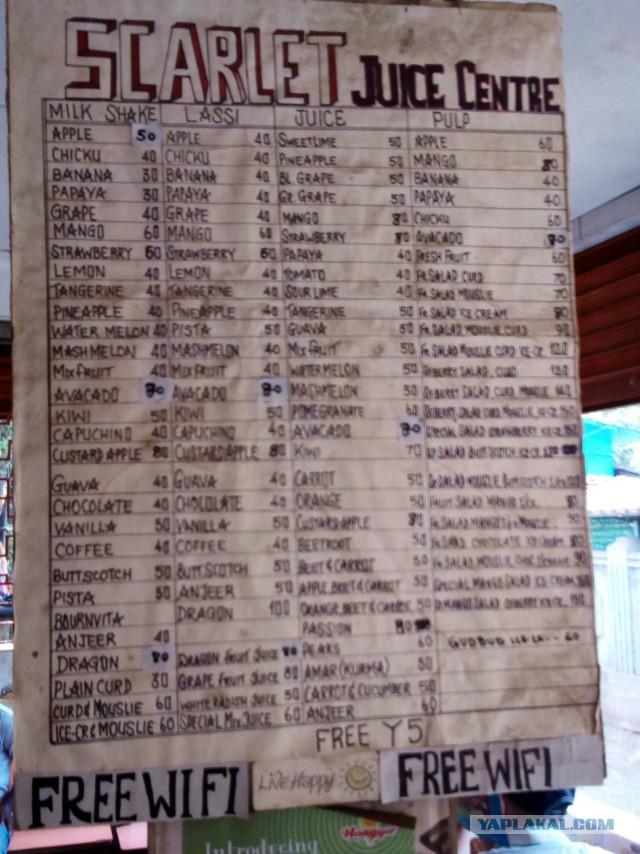 SCARLET JUICE CENTRE
MILK SHAKE LASSI JUICE PULP
APPLE 50 APPLE 40 SWEETLIME 50 APPLE 60
CHICKU 40 CHICKU 40 PINEAPPLE 50 MANGO 80
BANANA 30 BANANA 40 BL GRAPE 50 BANANA 40
PAPAYA 30 PAPAYA 40 GR. GRAPE 50 PAPAYA 40
GRAPE 40 GRAPE 40 MANGO 80 CHICKU 60
MANGO 60 MANGO 60 STRAWBERRY 80 AVACADO
STRAWBERRY 60 STRAWBERRY 60 PAPAYA 40 FRESH FRUIT 60
LEMON 40 LEMON 40 TOMATO 40 FR. SALAD CURD 70
TANGERINE 40 TANGERINE 40 SOUR LIME 40 FR. SALAD MOUSLIE 70
PINEAPPLE 40 PINEAPPLE 40 TANGERINE 50 FR. SALAD ICE CREAM 80
WATER MELON 40 PISTA 50 GUAVA 50 FR. SALAD MOUSLIE CURD 90
MASHMELON 40 MASHMELON 40 MIX FRUIT 50 FR. SALAD MOUSLIE CURD ICE-CR 120
MIX FRUIT 40 MIX FRUIT 40 WATER MELON 50 SALAD CURD 120
AVACADO AVACADO MASHMELON 50 SALAD CURD MOUSLIE
KIWI 50 KIWI 50 POMEGRANATE 60 SALAD CURD MOUSLIE
CAPUCHINO 40 CAPUCHINO 40 AVACADO SPECIAL SALAD STRAWBERRY
CUSTARD APPLE 80 CUSTARD APPLE 80 KIWI 70 SALAD BUTTSCOTCH
GUAVA 40 GUAVA 40 CARROT 50 SALAD MOUSLIE BUTTSCOTCH
CHOCOLATE 40 CHOCOLATE 40 ORANGE 50 FRUIT SALAD MANGO
VANILLA 50 VANILLA 50 CUSTARD APPLE 80 FR. SALAD MANGO
COFFEE 40 COFFEE 40 BEETROOT 50 FR. SALAD CHOCOLATE ICE CREAM
BUTTSCOTCH 50 BUTTSCOTCH 50 BEET & CARROT 50 FR. SALAD MOUSLIE
PISTA 50 ANJEER 50 APPLE BEET & CARROT 50 SPECIAL MANGO SALAD ICE CREAM
BOURNVITA DRAGON 100 ORANGE BEET & CARROT 50 SALAD
PASSION 80
ANJEER 40 PEARS 60 GUDBUD 60
DRAGON DRAGON FRUIT JUICE AMAR (KURMA) 80
PLAIN CURD 30 GRAPE FRUIT JUICE 80 CARROT & CUCUMBER 50
CURD & MOUSLIE 60 WHITE RADISH JUICE 50 ANJEER 60
ICE-CR & MOUSLIE 60 SPECIAL MIX JUICE 60
FREE Y5
FREE WIFI LIVE Happy FREE WIFI
Introducing
Hangyo
YAPLAKAL.COM